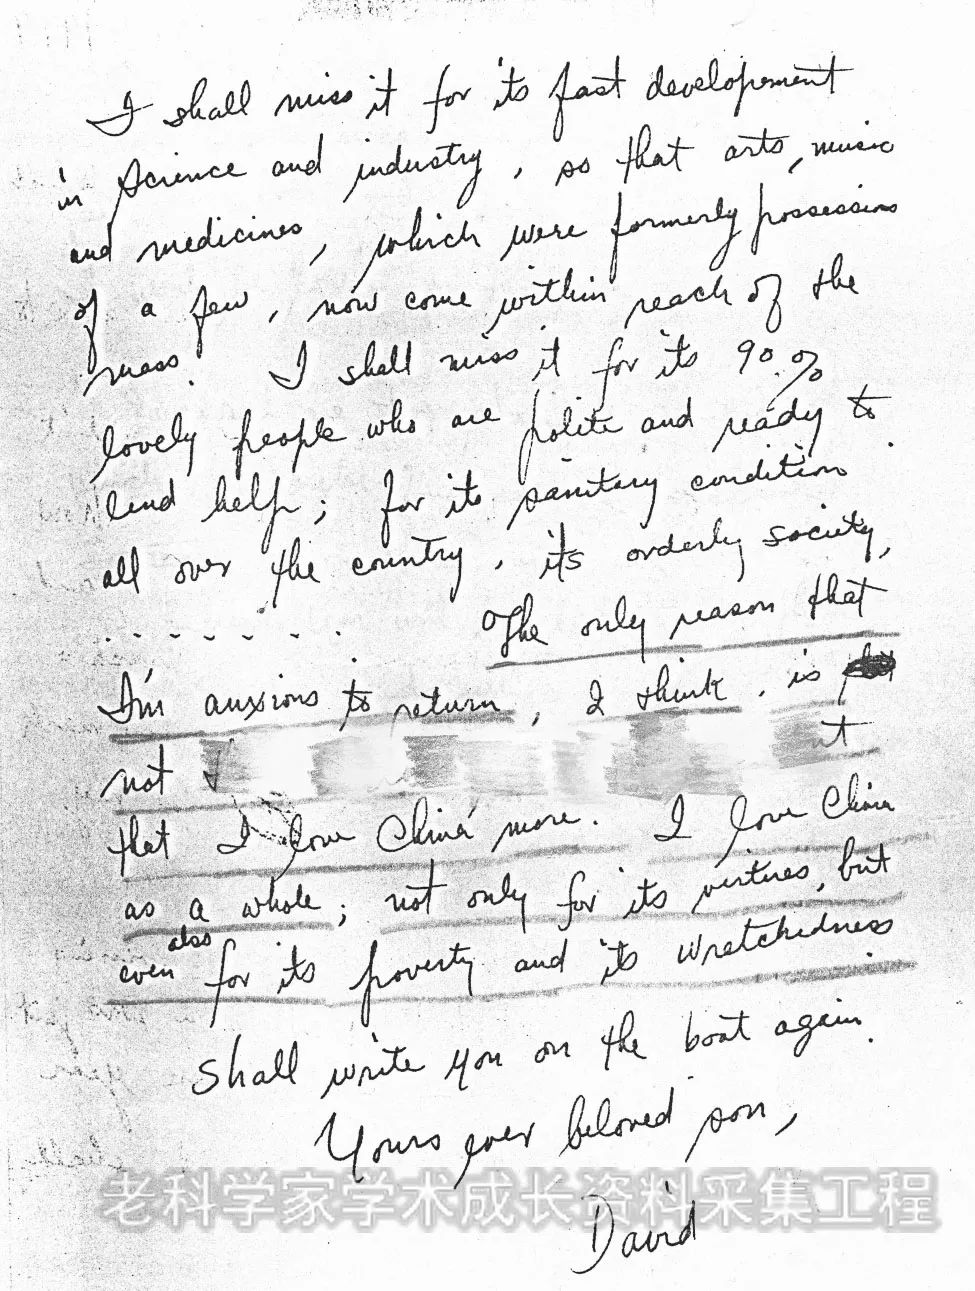 I shall miss it for its fast developement
in Science and industry, so that arts, music
and medicines, which were formerly possessions
of a few, now come within reach of the
mass. I shall miss it for its 90%
lovely people who are polite and ready to
lend help; for its sanitary condition
all over the country, its orderly society,
. . . . . . . . The only reason that
I'm anxious to return, I think, is
not
that I love China more. I love China
as a whole; not only for its virtues, but
even also for its poverty and its wretchedness.
Shall write you on the boat again.
Yours ever beloved son,
老科学家学术成长资料采集工程
David